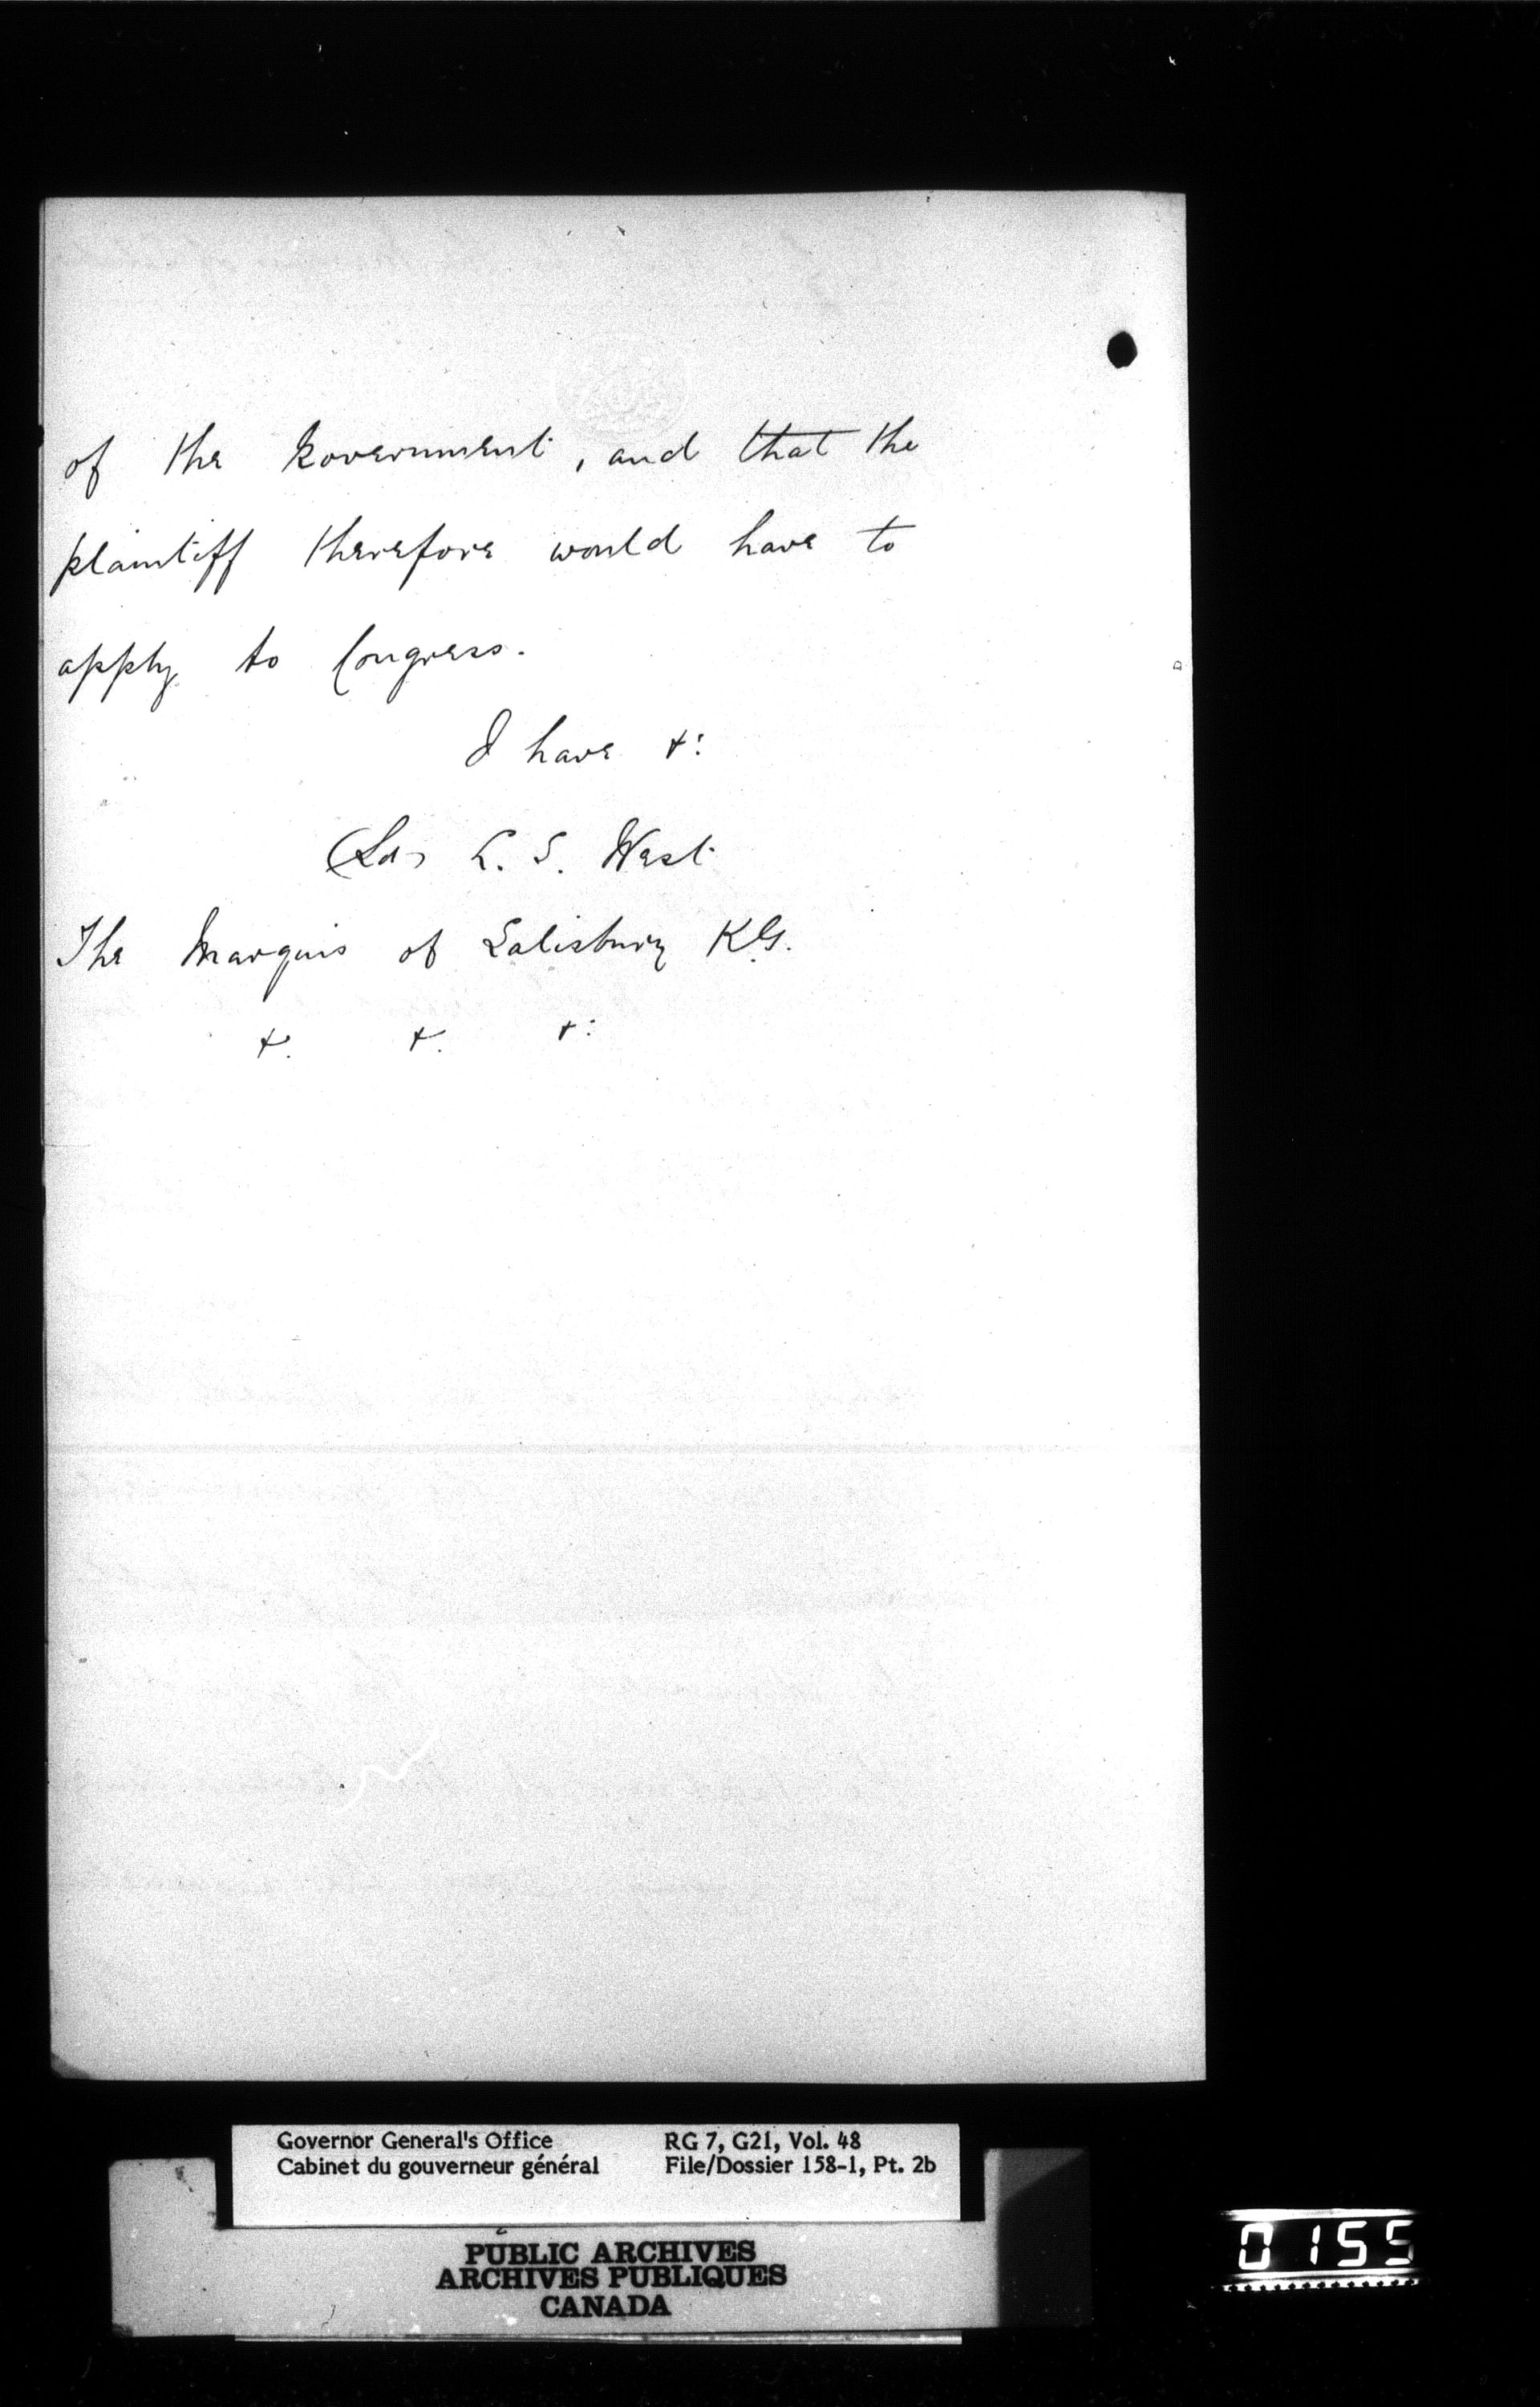 of the Government, and that the
plaintiff therefore would have to
apply to Congress.
I have &:
(Sd) L. S. West
The Marquis of Salisbury K.G.
&. &. &:
Governor General's Office RG 7, G21, Vol. 48
Cabinet du gouverneur général File/Dossier 158-1, Pt. 2b
PUBLIC ARCHIVES
ARCHIVES PUBLIQUES
CANADA
0155